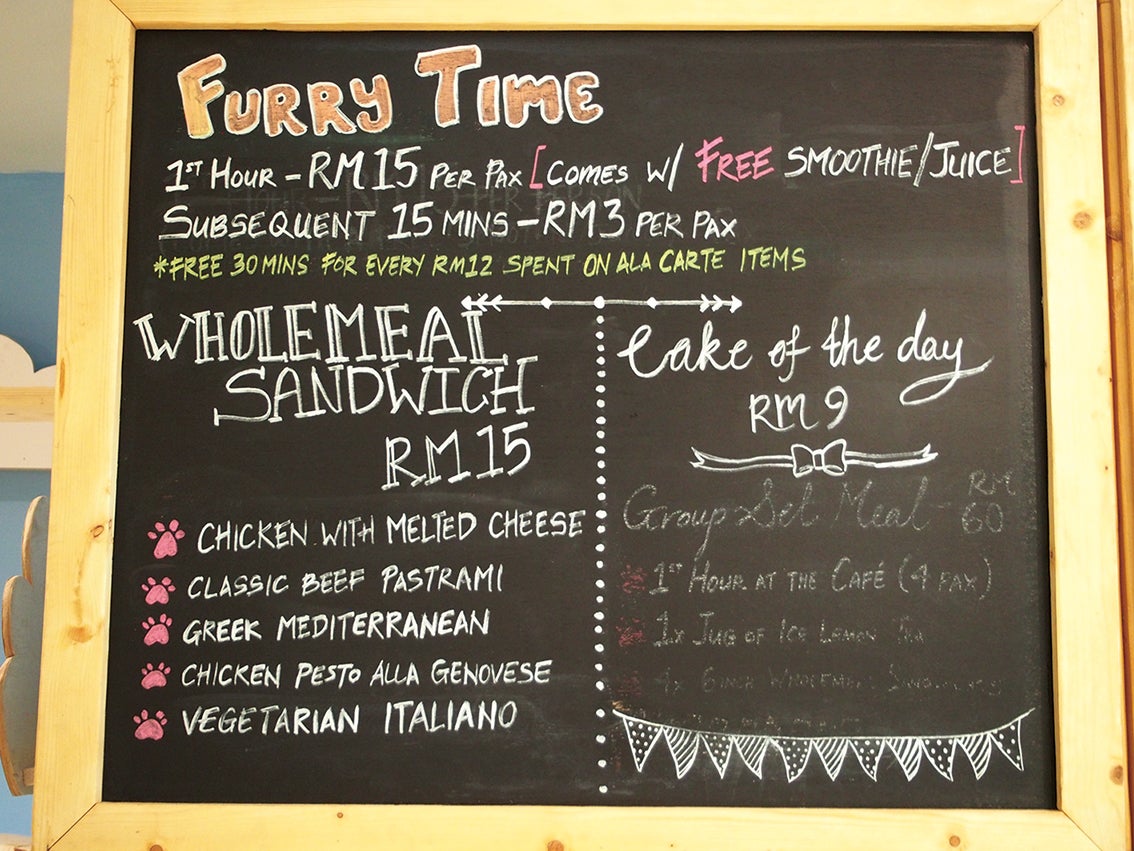 FURRY TIME
1ST HOUR - RM15 PER PAX [COMES W/ FREE SMOOTHIE/JUICE]
SUBSEQUENT 15 MINS - RM3 PER PAX
*FREE 30 MINS FOR EVERY RM12 SPENT ON ALA CARTE ITEMS
WHOLEMEAL
SANDWICH
RM15
CHICKEN WITH MELTED CHEESE
CLASSIC BEEF PASTRAMI
GREEK MEDITERRANEAN
CHICKEN PESTO ALLA GENOVESE
VEGETARIAN ITALIANO
Cake of the day
RM 9
Group Set Meal - RM 60
1ST HOUR AT THE CAFÉ (4 PAX)
1X JUG OF ICE LEMON TEA
4X 6 INCH WHOLEMEAL